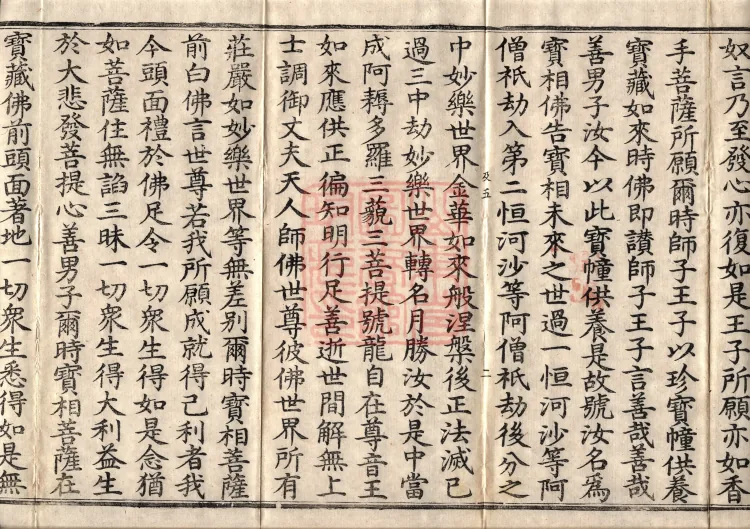 奴言乃至發心亦復如是王子所願亦如香
手菩薩所願爾時師子王子以珍寶幢供養
寶藏如來時佛即讃師子王子言善哉善哉
善男子汝今以此寶幢供養是故號汝名爲
寶相佛告寶相未來之世過一恒河沙等阿
僧祇劫入第二恒河沙等阿僧祇劫後分之
中妙樂世界金華如來般涅槃後正法滅已
過三中劫妙樂世界轉名月勝汝於是中當
成阿耨多羅三藐三菩提號龍自在尊音王
如來應供正徧知明行足善逝世間解無上
士調御丈夫天人師佛世尊彼佛世界所有
莊嚴如妙樂世界等無差別爾時寶相菩薩
前白佛言世尊若我所願成就得己利者我
今頭面禮於佛足令一切衆生得如是念猶
如菩薩住無諂三昧一切衆生得大利益生
於大悲發菩提心善男子爾時寶相菩薩在
寶藏佛前頭面著地一切衆生悉得如是無